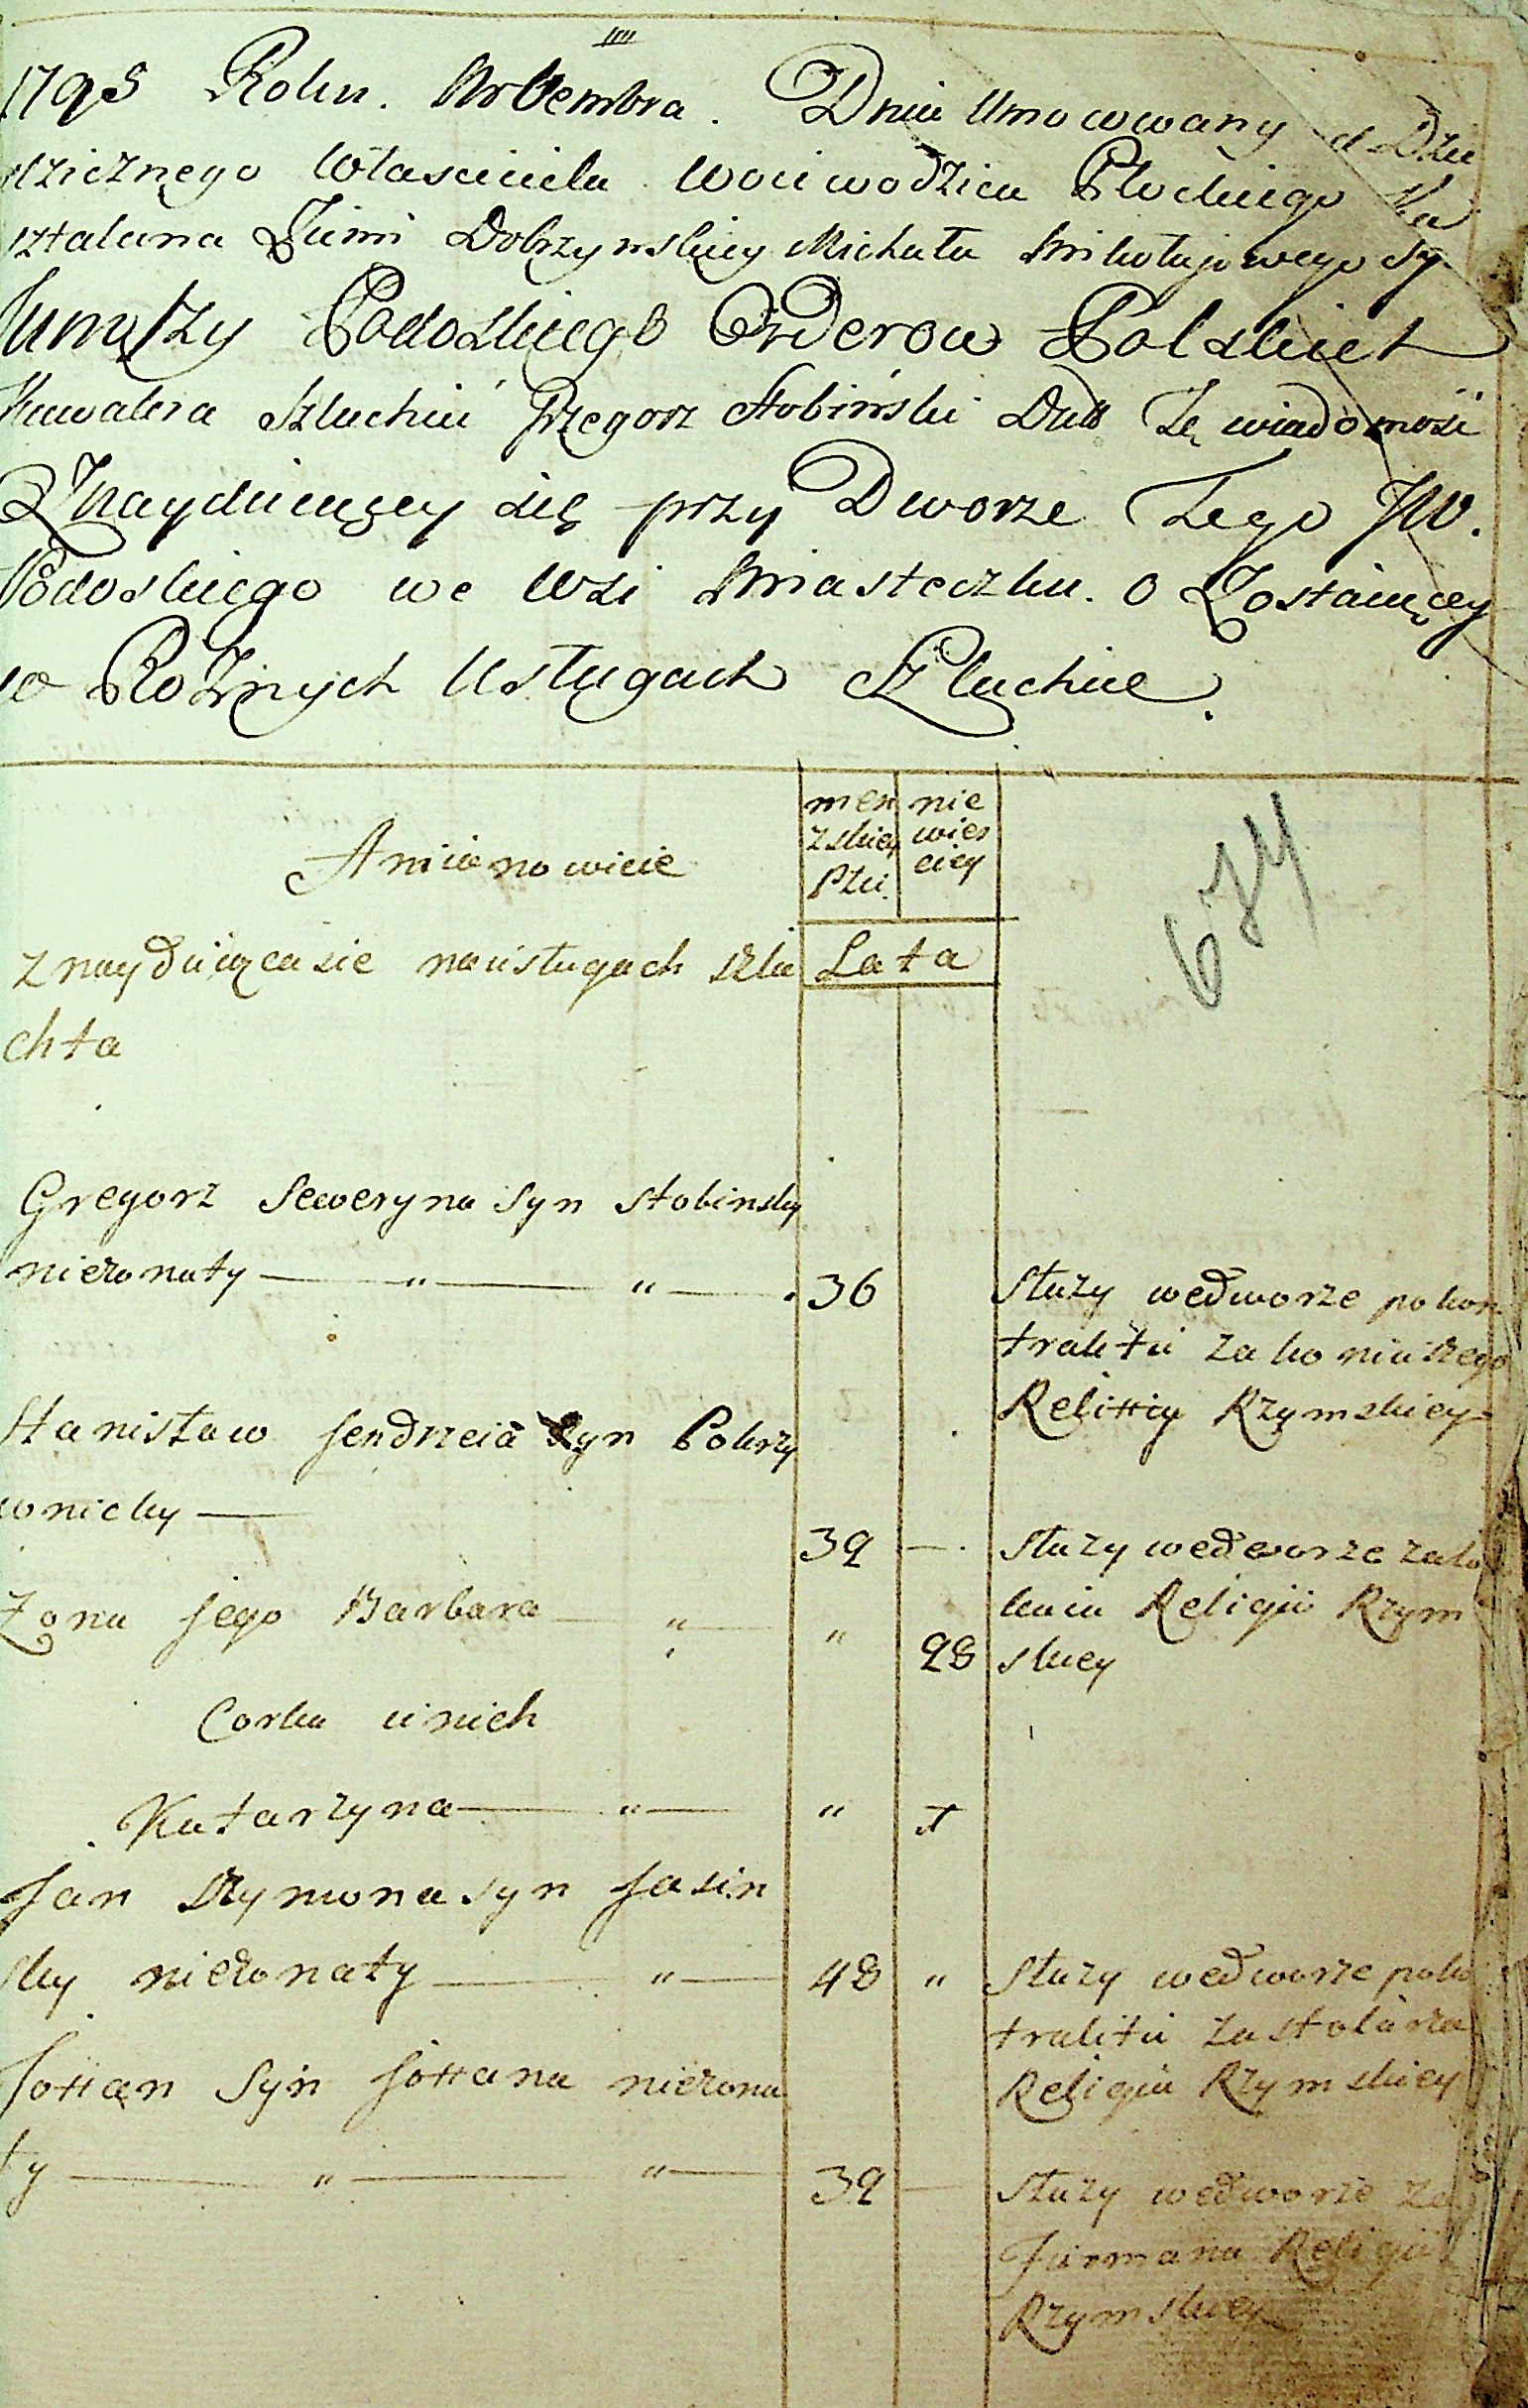 1795 Roku. Novembra. Dnia Umocowany od Dzie
dzicznego Własciciela Woiewodzica Płockiego Ka
sztalana Ziemi Dobrzynskiey Michała Mikołajowego Sy
Podoskiego Orderow Polskich
Kawalera Szlachcic Grzegorz Stobiński Daie Tę wiadomość
Znayduiącey się przy Dworze Tego JW.
Podoskiego we Wsi Miasteczku. O Zostaiącey
w Rożnych Usługach Szlachcie.
Amianowicie
męn nie
zskiey wies
Płci. ciey
Lata
674
znayduiącasie nausługach szla
chta
Gregorz Seweryna syn Stobinsky
nieżonaty — " — " — 36
Służy wedworze pokon
traktu zakoniuszego
Religiy Rzymskiey
Stanisław Jendrzeia Syn Pokrzy
wnicky —
39 —
Służy wedworze zalo
kaia Religii Rzym
skiey
Zona Jego Barbara — " — " 28
Corka unich
Katarzyna — " — "
Jan Szymona syn Jasin
sky nieżonaty — " — 48 "
Służy wedworze poko
traktu zastolarza
Religii Rzymskiey
syn nieżona
ty — " — " — 39 —
Służy wedworze za
Furmana Religii
Rzymskiey